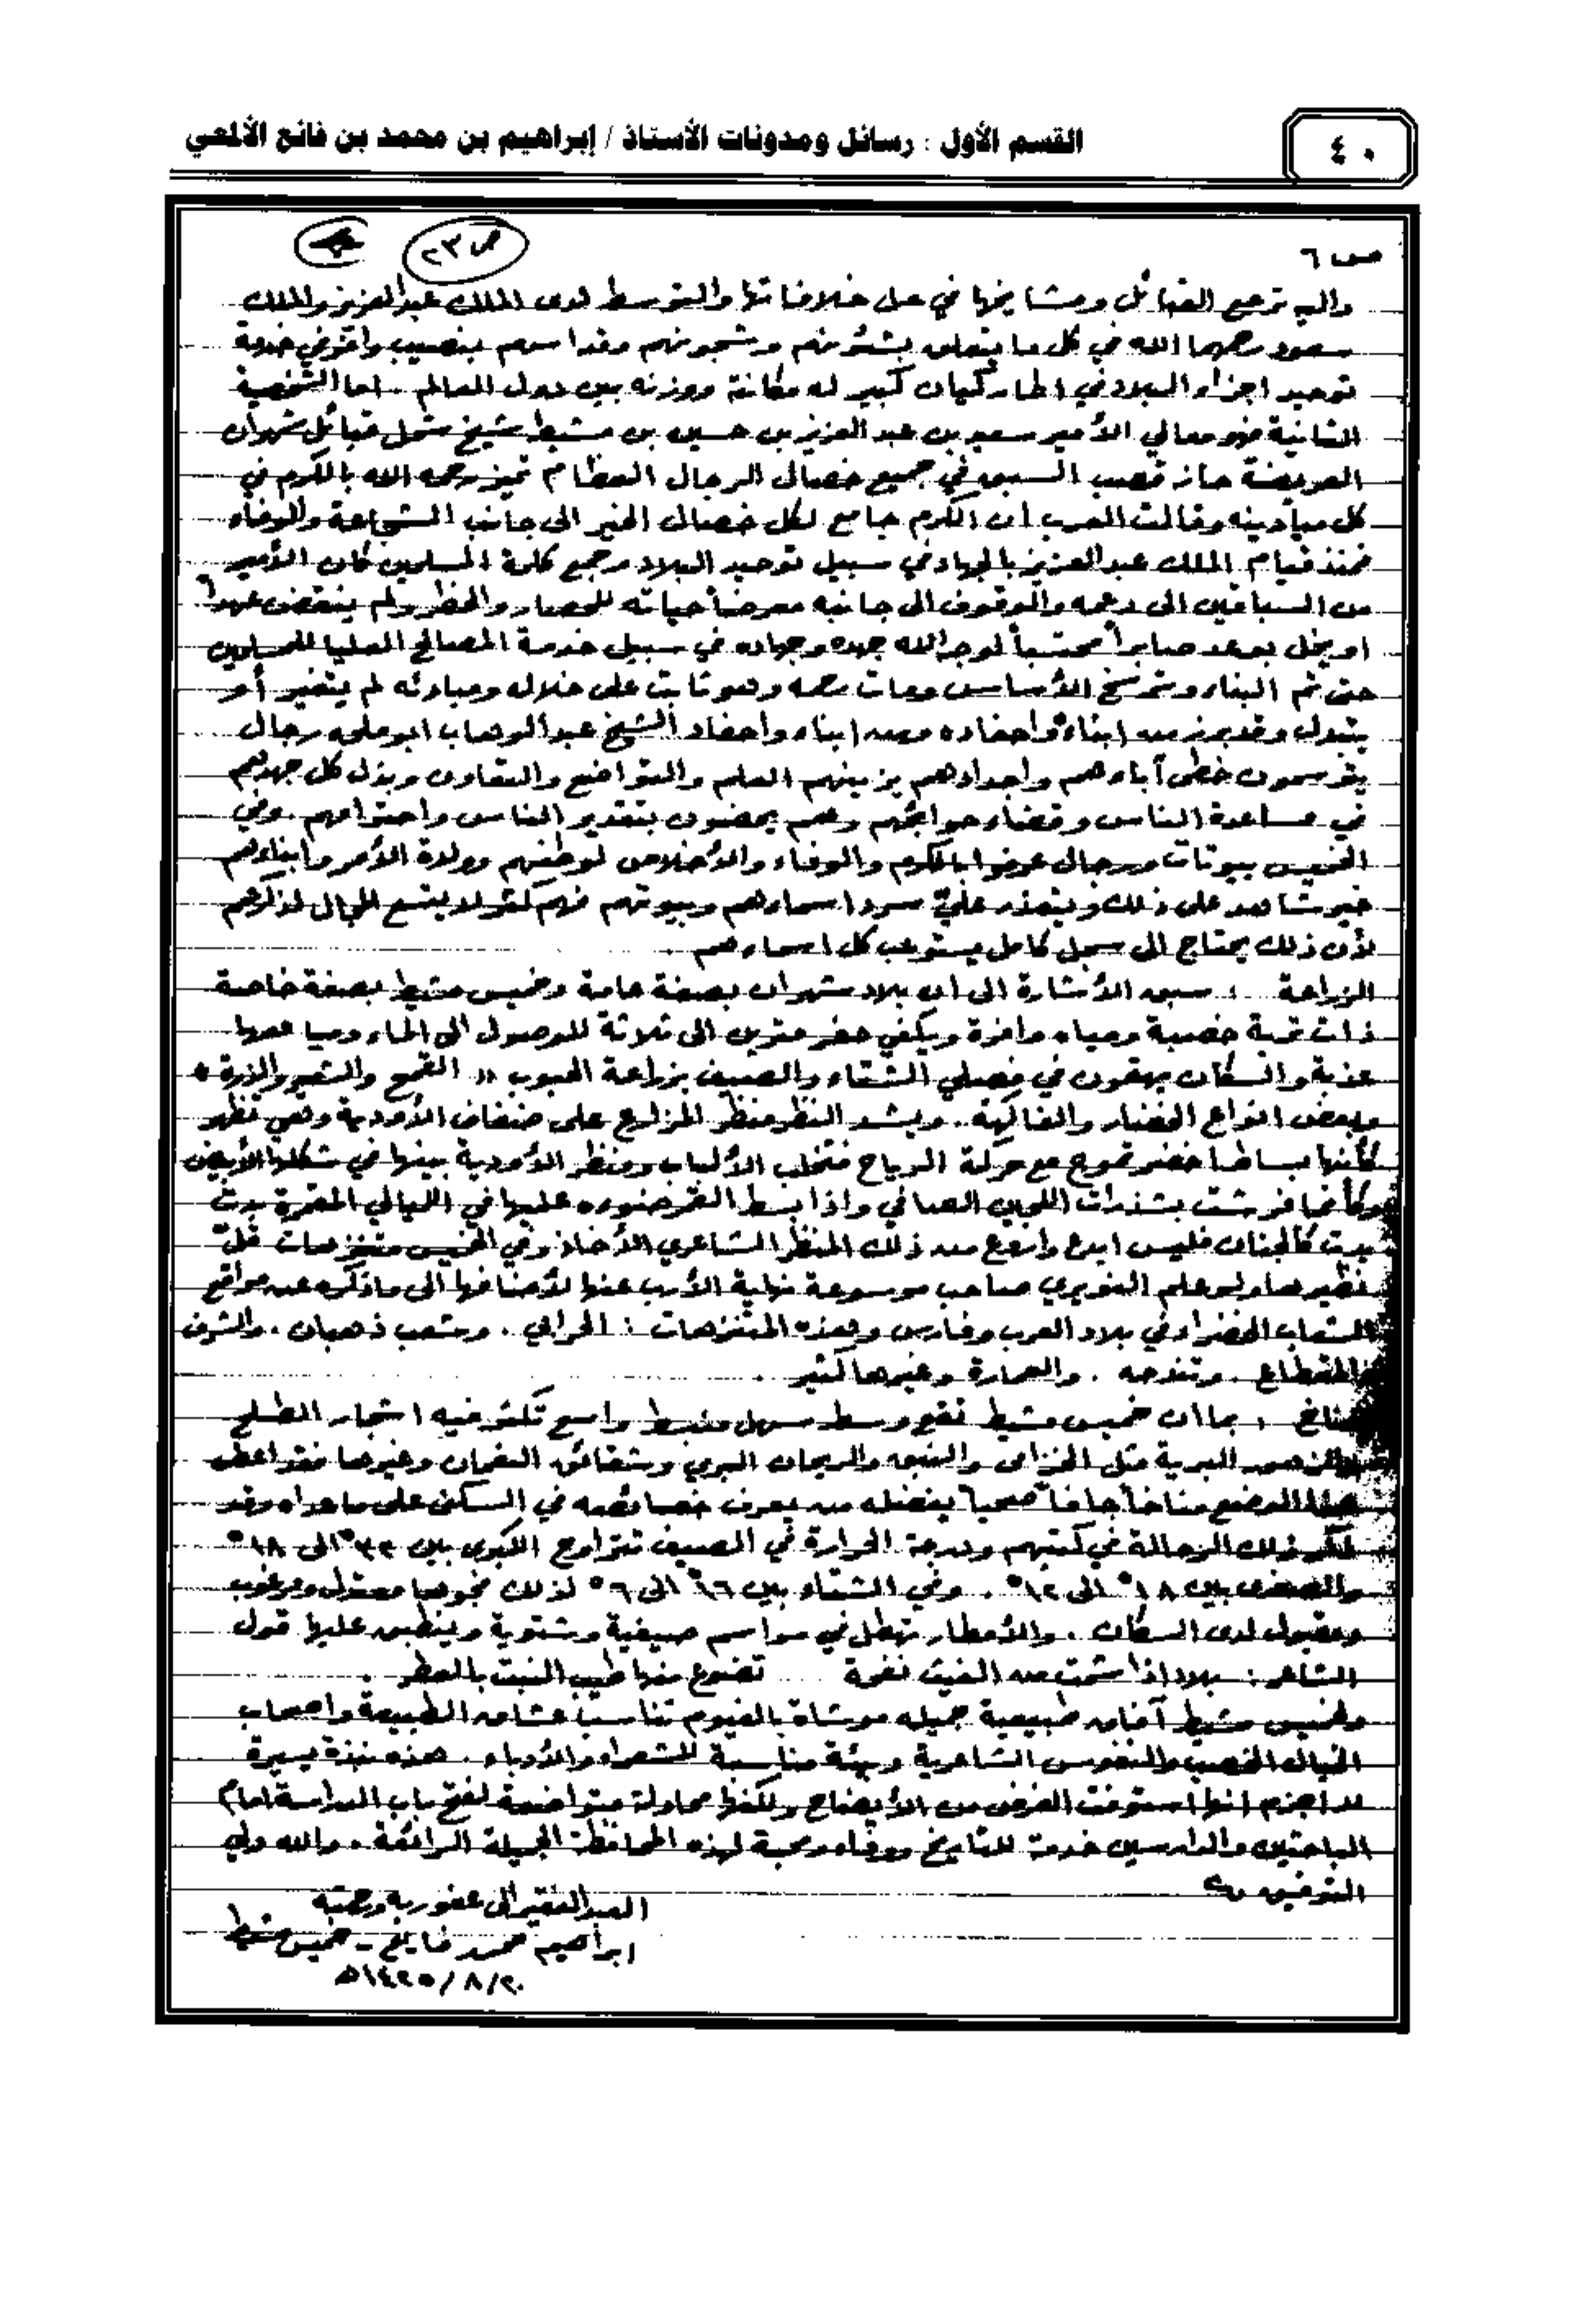 ٤٠
القسم الأول : رسائل ومدونات الأستاذ / إبراهيم بن محمد بن فائع الألمعي
ص ٦
ص ٢٣
واليه ترجع القبائل ومشايخها في حل خلافاتها والتوسط لدى الملك عبدالعزيز والملك
سعود رحمهما الله في كل ما يتعلق بشئونهم وشجونهم وقد اسهم بنصيب وافر في خدمة
توحيد اجزاء البلاد في اطار كيان كبير له مكانة ووزنه بين دول العالم . اما الشخصية
الثانية فهو معالي الأمير سعيد بن عبدالعزيز بن حسين بن مشيط شيخ شمل قبائل شهران
العريضة حاز قصب السبق في جميع خصال الرجال العظام تميز رحمه الله بالكرم في
كل ميادينه وقالت العرب ان الكرم جامع لكل خصال الخير الى جانب الشجاعة والوفاء
فمنذ قيام الملك عبدالعزيز بالجهاد في سبيل توحيد البلاد وجمع كلمة المسلمين كان الأمير
من السباقين الى دعمه والوقوف الى جانبه معرضاً حياته للحصار والخطر ولم ينقض عهداً
او يخل بوعد صابراً محتسباً لوجه الله جهده وجهاده في سبيل خدمة المصالح العليا للمسلمين
حتى تم البناء وترسخ الأساس ومات رحمه وهو ثابت على خلاله ومبادئه لم يتغير أو
يتبدل وقد برز من ابناءه واحفاده ومن ابناء واحفاد الشيخ عبدالوهاب ابو ملحه رجال
يترسمون خطى آباءهم واجدادهم يزينهم العلم والتواضع والتعاون وبذل كل جهدهم
في مساعدة الناس وقضاء حوائجهم وهم يحضون بتقدير الناس واحترامهم . وفي
الخميس بيوتات ورجال عرفوا بالكرم والوفاء والأخلاص لوطنهم وولاة الأمر وابناءهم
خير شاهد على ذلك ويتعذر عليّ سرد اسماءهم وبيوتهم فهم كثر لا يتسع المجال لذكرهم
لأن ذلك يحتاج الى سجل كامل يستوعب كل اسماءهم .
الزراعة : سبق الأشارة الى ان بلاد شهران بصفة عامة وخميس مشيط بصفة خاصة
ذات تربة خصبة ومياه وافرة ويكفي حفر مترين الى ثلاثة للوصول الى الماء ومياهها
عذبة والسكان يهتمون في فصلي الشتاء والصيف بزراعة الحبوب « القمح والشعير والذرة »
وبعض انواع الخضار والفاكهة . ويشد النظر منظر المزارع على ضفاف الأودية وهي تظهر
كأنها بساطا اخضر تموج مع حركة الرياح فتخلب الألباب ومنظر الأودية بينها في شكلها الأبيض
وكأنما فرشت بشذرات اللجين الصافي واذا بسط القمر ضوءه عليها في الليالي المقمرة بدت
بدت كالجنان فليس ابدع واروع من ذلك المنظر الشاعري الأخاذ وفي الخميس متنزهات قلّ
نظيرها ولو علم النويري صاحب موسوعة نهاية الأرب عنها لأضافها الى ما ذكره عن مواقع
الشعاب الخضراء في بلاد العرب وفارس وهذه المتنزهات : الحرابي . وشعب ذهبان . والشرف
والمقطاع . وتندحه . والعمارة وغيرها كثير .
المناخ : بما ان خميس مشيط تقع وسط سهل منبسط واسع تكثر فيه اشجار الطلح
والزهور البرية مثل الخزامى والنبق والريحان البري وشقائق النعمان وغيرها فقد اعطى
هذا الوضع مناخاً جافاً صحياً يفضله من يعرف خصائصه في السكن على ماعداه وقد
ذكر ذلك الرحالة في كتبهم ودرجة الحرارة في الصيف تتراوح الكبرى بين ٣٢° الى ١٨°
والصغرى بين ١٨° الى ١٢° . وفي الشتاء بين ١٦° الى ٦° لذلك فجوها معتدل ومرغوب
ومقبول لدى السكان . والأمطار تهطل في مواسم صيفية وشتوية وينطبق عليها قول
الشاعر : بلاد اذا شمت من الغيث نفحة .... تضوع منها طيب النبت بالعطر .
ولخميس مشيط آفاق طبيعية جميله موشاة بالغيوم تناسب عشاق الطبيعة واصحاب
الخيال الخصب والنفوس الشاعرية وبيئة مناسبة للشعراء والأدباء . هذه نبذة يسيرة
لا اجزم انها استوفت الغرض من الأيضاح ولكنها محاولة متواضعة لفتح باب الدراسة امام
الباحثين والدارسين خدمة للتاريخ ووفاء ومحبة لهذه المحافظة الجميلة الرائعة . والله ولي
التوفيق
العبد الفقير الى عفو ربه ورحمته
ابراهيم محمد فايع - خميس مشيط
٢٠/٨/١٤٢٥ هـ